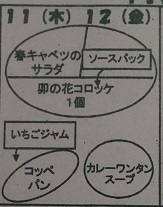 11(木) 12(金)
春キャベツの
サラダ
ソースパック
卯の花コロッケ
1個
いちごジャム
コッペ
パン
カレーワンタン
スープ